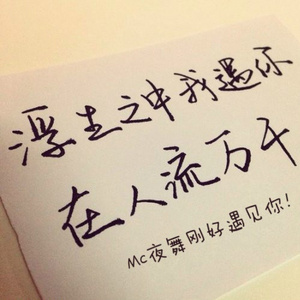 浮生之中我遇你
在人流万千
Mc夜舞刚好遇见你!